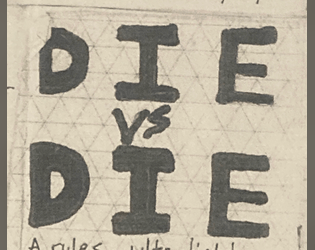 DIE
VS
DIE
A rules